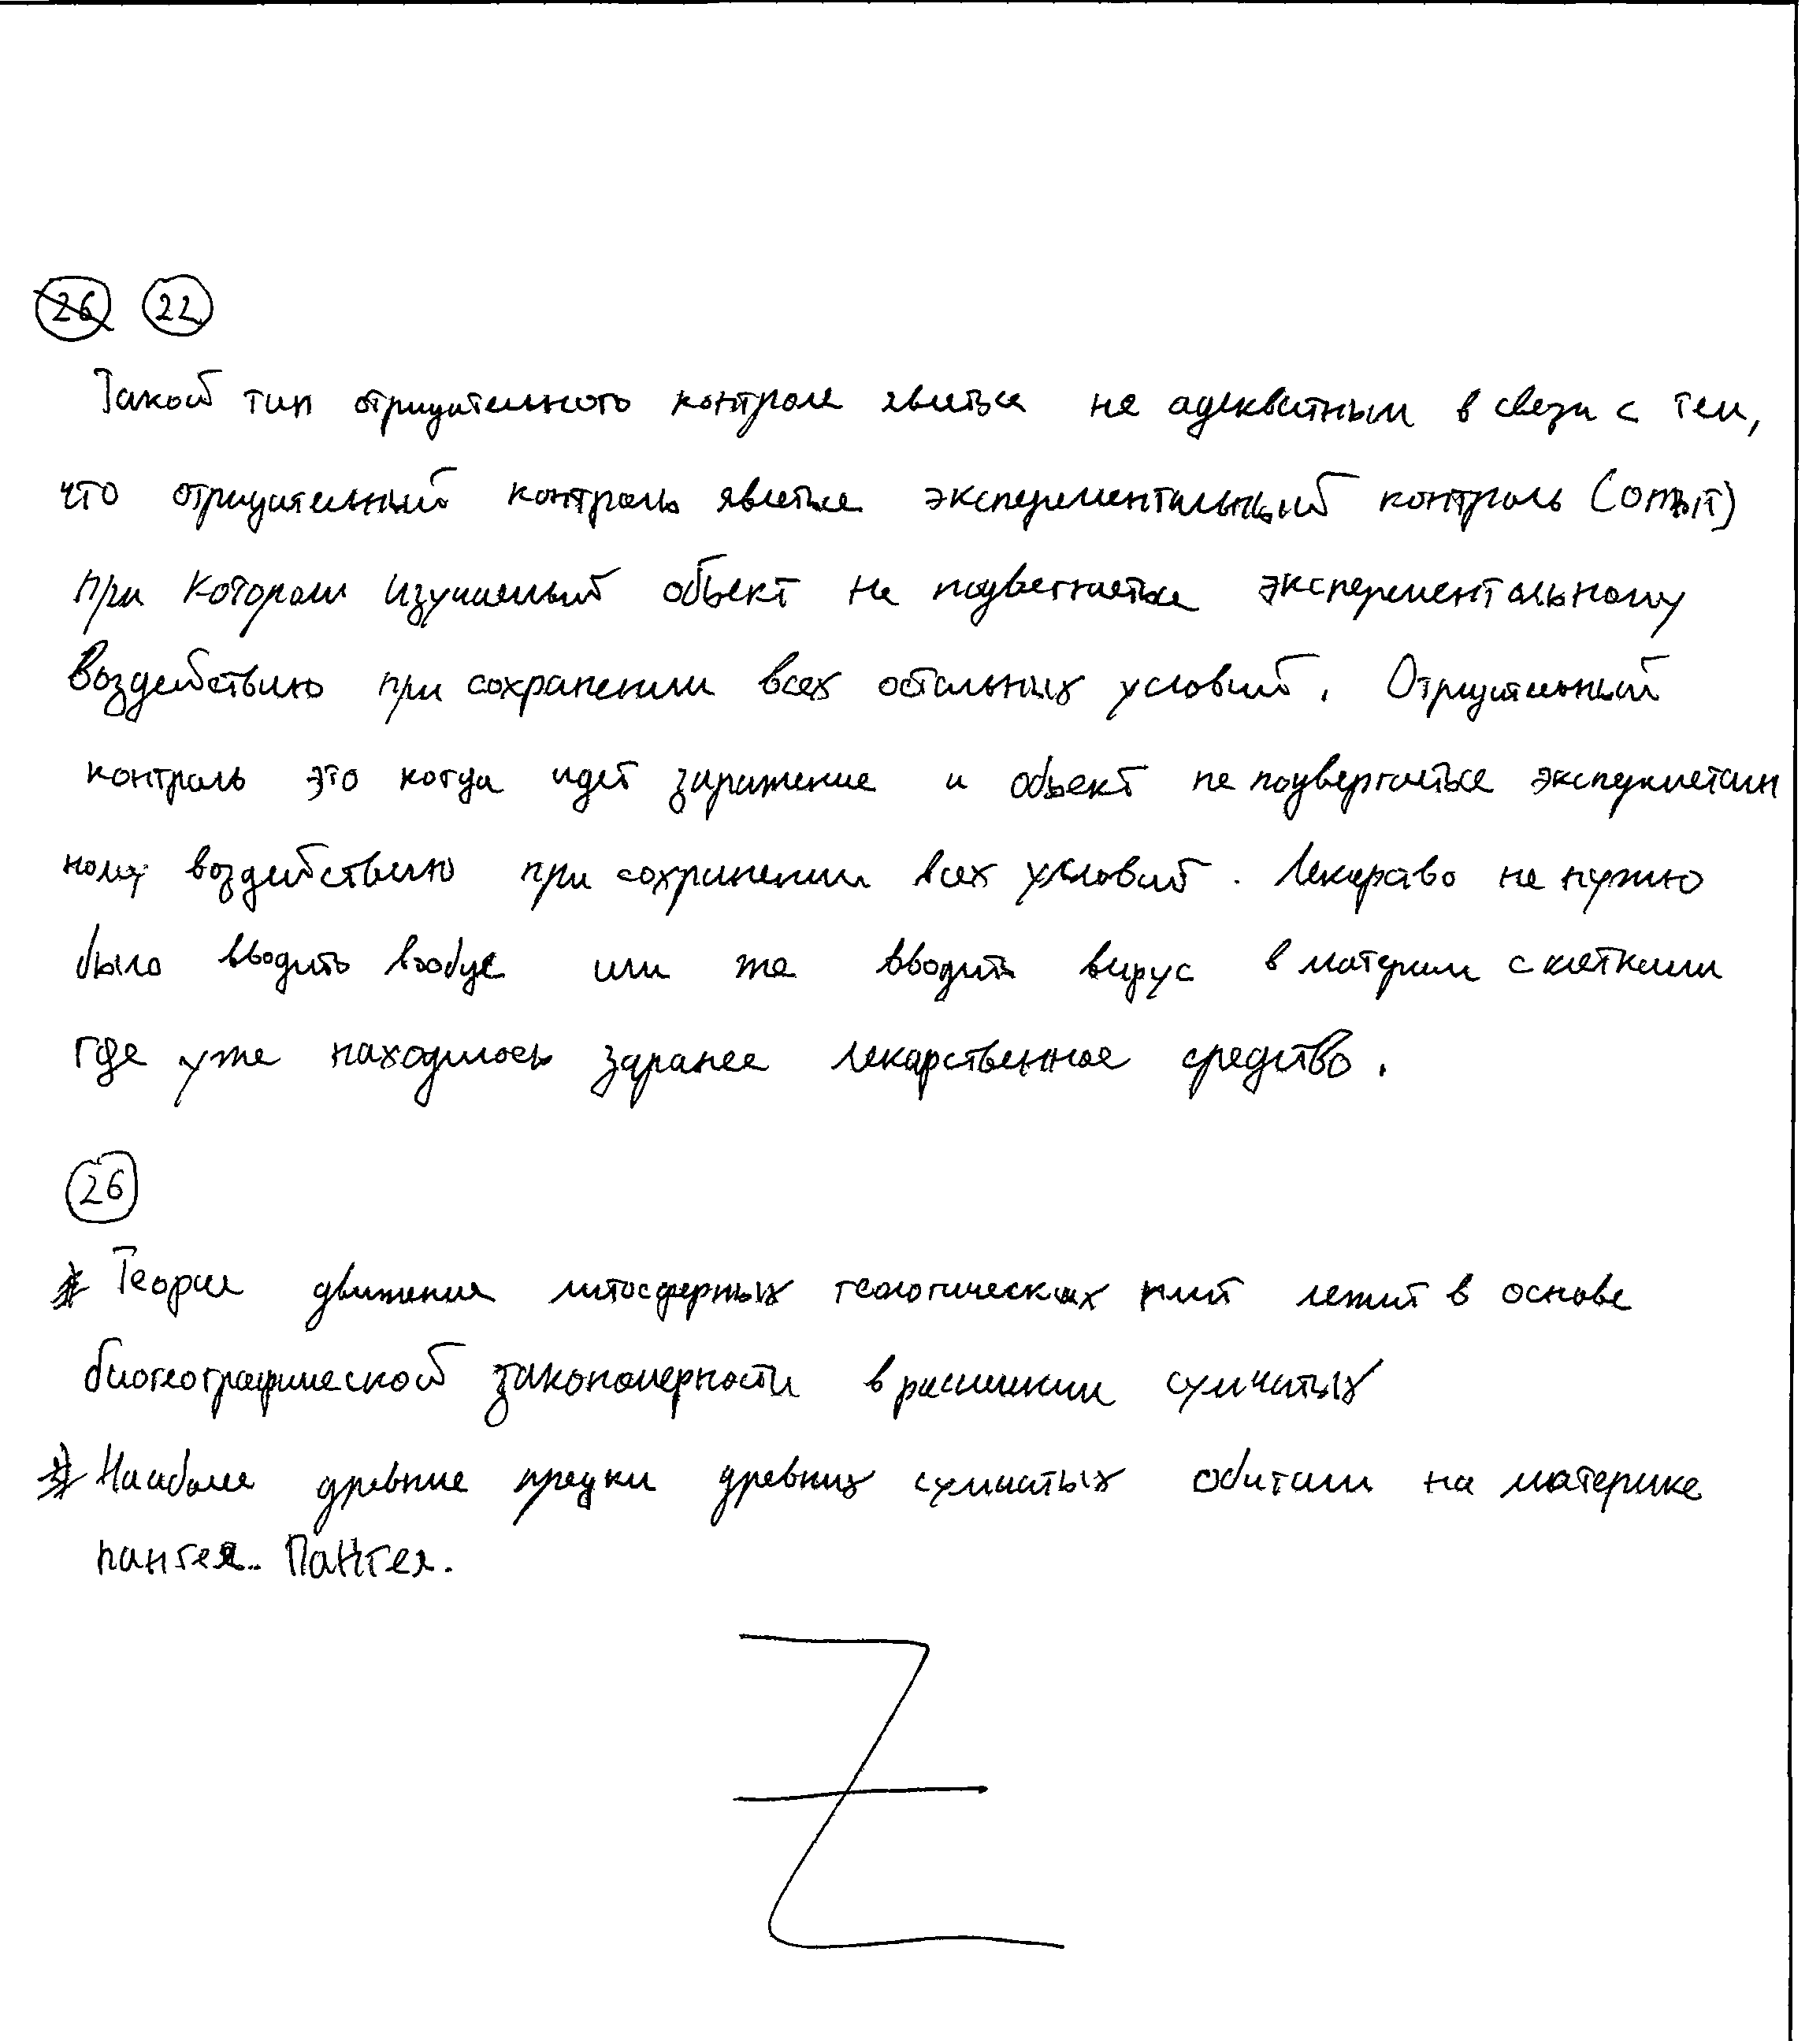 26 22
Такой тип отрицательного контроля явлеться не адекватным в связи с тем,
что отрицательный контроль явлеться эксперементальный контроль (опыт)
при котором изучаемый объект не подвегнаеться эксперементальному
воздействию при сохранении всех остальных условий. Отрицательный
контроль это когда идет заражение и объект не подвергаеться
ному воздействию при сохранении всех условий. не нужно
было вводить или же вводить вирус в материал с клетками
где уже находилось заранее лекарственное средство.
26
Теория движения литосферных геологических плит лежит в основе
биогеографической закономерности в сумчатых
Наиболее древние предки древних сумчатых обитали на материке
пангея.. Пангея.
Z